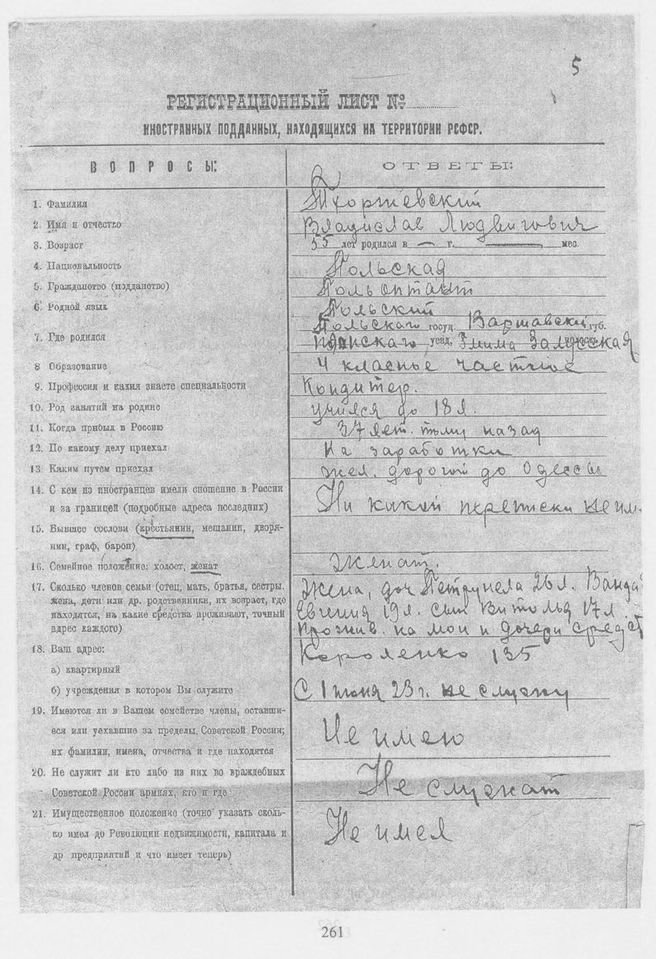 5
РЕГИСТРАЦИОННЫЙ ЛИСТ №
ИНОСТРАННЫХ ПОДДАННЫХ, НАХОДЯЩИХСЯ НА ТЕРРИТОРИИ РСФСР.
ВОПРОСЫ: ОТВЕТЫ:
1. Фамилия Тхоржевский
2. Имя и отчество Владислав Людвигович
3. Возраст 55 лет родился в — г. — мес.
4. Национальность Польская
5. Гражданство (подданство) Польоптант
6. Родной язык Польский
7. Где родился Польскаго госуд. Варшавской губ.
уезд, Гмина Залусская
8 Образование 4 класные частное
9. Профессия и какия знаете специальности Кондитер.
10. Род занятий на родине учился до 18 л.
11. Когда прибыл в Россию 37 лет. тому назад
12. По какому делу приехал На заработки
13. Каким путем приехал жел. дорогой до Одессы
14. С кем из иностранцев имели сношение в России
и за границей (подробные адреса последних) Ни какой переписки не им.
15. Бывшее сослови (крестьянин, мещанин, дворя-
нин, граф, барон)
16. Семейное положение: холост, женат Женат.
17. Сколько членов семьи (отец, мать, братья, сестры. Жена, доч Петрунела 26 л. Ванда
жена, дети или др. родственники, их возраст, где Евгения 19 л. сын Витольд 17 л
находятся, на какие средства проживают, точный Прожив. на мои и дочери средст
адрес каждого)
18. Ваш адрес: Короленко 135
а) квартирный
б) учреждения в котором Вы служите С 1 июня 23 г. не служу
19. Имеются ли в Вашем семействе члены, оставши-
еся или уехавшие за пределы, Советской России; Не имею
их фамилии, имена, отчества и где находятся
20. Не служит ли кто либо из них во враждебных
Советской России армиях, кто и где Не служат
21. Имущественное положение (точно указать сколь-
ко имел до Революции недвижимости, капитала и Не имел
др предприятий и что имеет теперь)
261